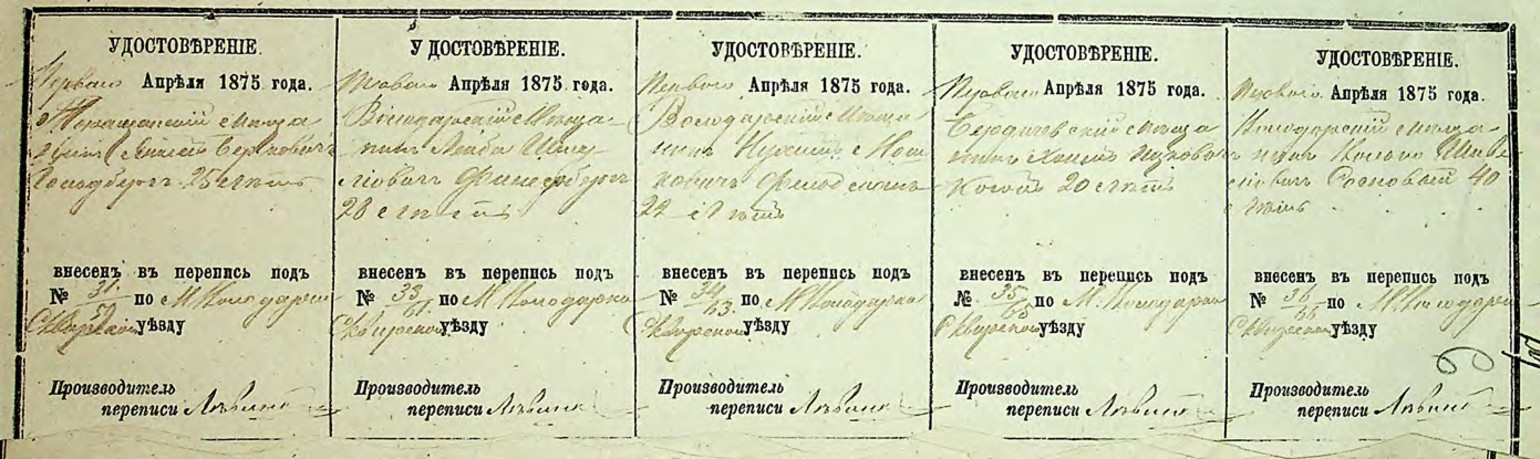 УДОСТОВѢРЕНІЕ.
Перваго Апрѣля 1875 года.
25 лѣтъ
внесенъ въ перепись подъ
№ 31/59 по М.
Сквирскому уѣзду
Производитель
переписи Лѣвинъ
УДОСТОВѢРЕНІЕ.
Перваго Апрѣля 1875 года.
Володарскій Мѣща-
нинъ Лейба Шму-
ліовичъ
28 лѣтъ
внесенъ въ перепись подъ
№ 33/61 по М. Володарка
Сквирскому уѣзду
Производитель
переписи Лѣвинъ
УДОСТОВѢРЕНІЕ.
Перваго Апрѣля 1875 года.
Володарскій Мѣща
нинъ Мош
ковичъ
22 лѣтъ
внесенъ въ перепись подъ
№ 34/63 по М. Володарка
Сквирскому уѣзду
Производитель
переписи Лѣвинъ
УДОСТОВѢРЕНІЕ.
Перваго Апрѣля 1875 года.
Бердичевскій мѣща
нинъ
20 лѣтъ
внесенъ въ перепись подъ
№ 35/65 по М. Володарка
Сквирскому уѣзду
Производитель
переписи Лѣвинъ
УДОСТОВѢРЕНІЕ.
Перваго Апрѣля 1875 года.
Володарскій мѣща-
нинъ
40
лѣтъ
внесенъ въ перепись подъ
№ 36/66 по М. Володарка
Сквирскому уѣзду
Производитель
переписи Лѣвинъ